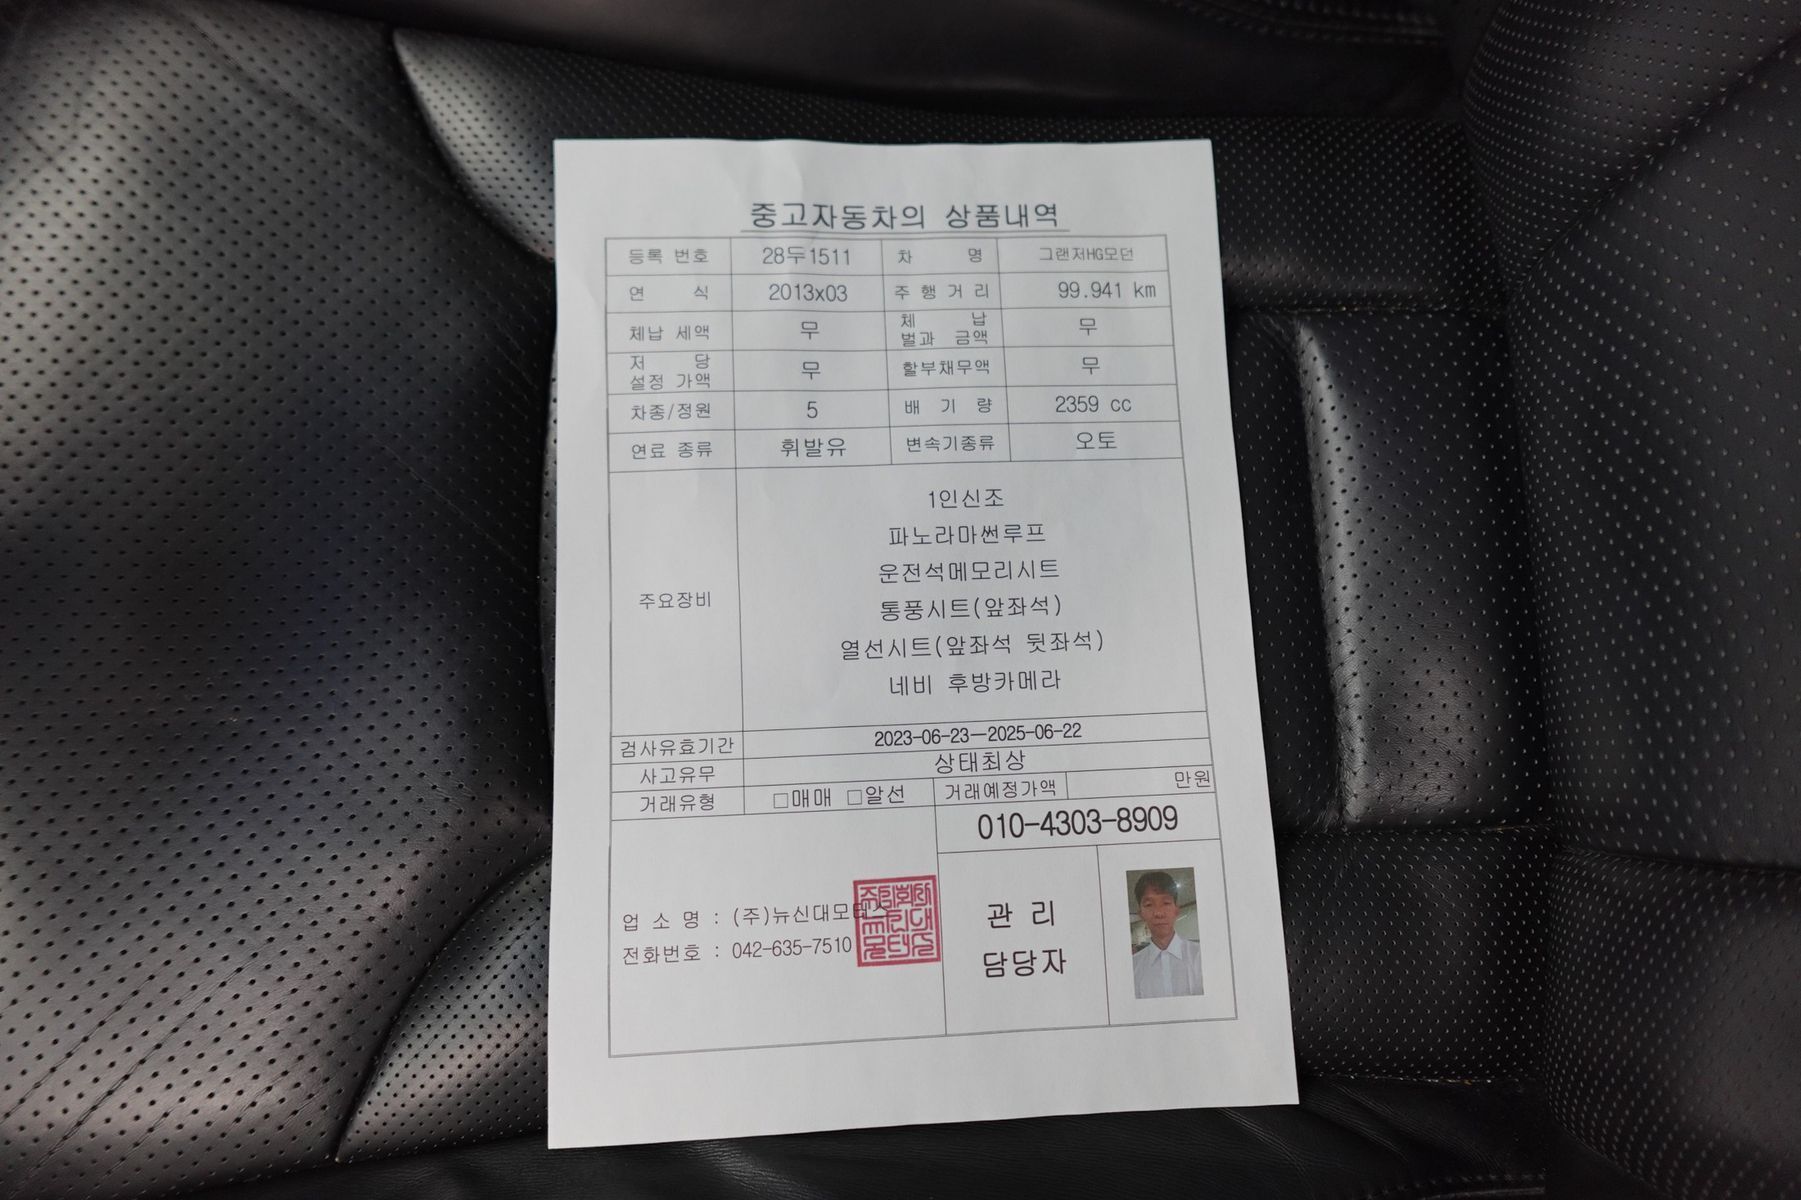 중고자동차의 상품내역
등록 번호 28두1511 차 명 그랜저HG모던
연 식 2013x03 주 행 거 리 99.941 km
체납 세액 무 체 납 벌과 금액 무
저 당 설정 가액 무 할부채무액 무
차종/정원 5 배 기 량 2359 cc
연료 종류 휘발유 변속기종류 오토
주요장비
1인신조
파노라마썬루프
운전석메모리시트
통풍시트(앞좌석)
열선시트(앞좌석 뒷좌석)
네비 후방카메라
검사유효기간 2023-06-23—2025-06-22
사고유무 상태최상
거래유형 □매매 □알선 거래예정가액 만원
010-4303-8909
업 소 명 : (주)뉴신대모터스
전화번호 : 042-635-7510
관 리
담당자